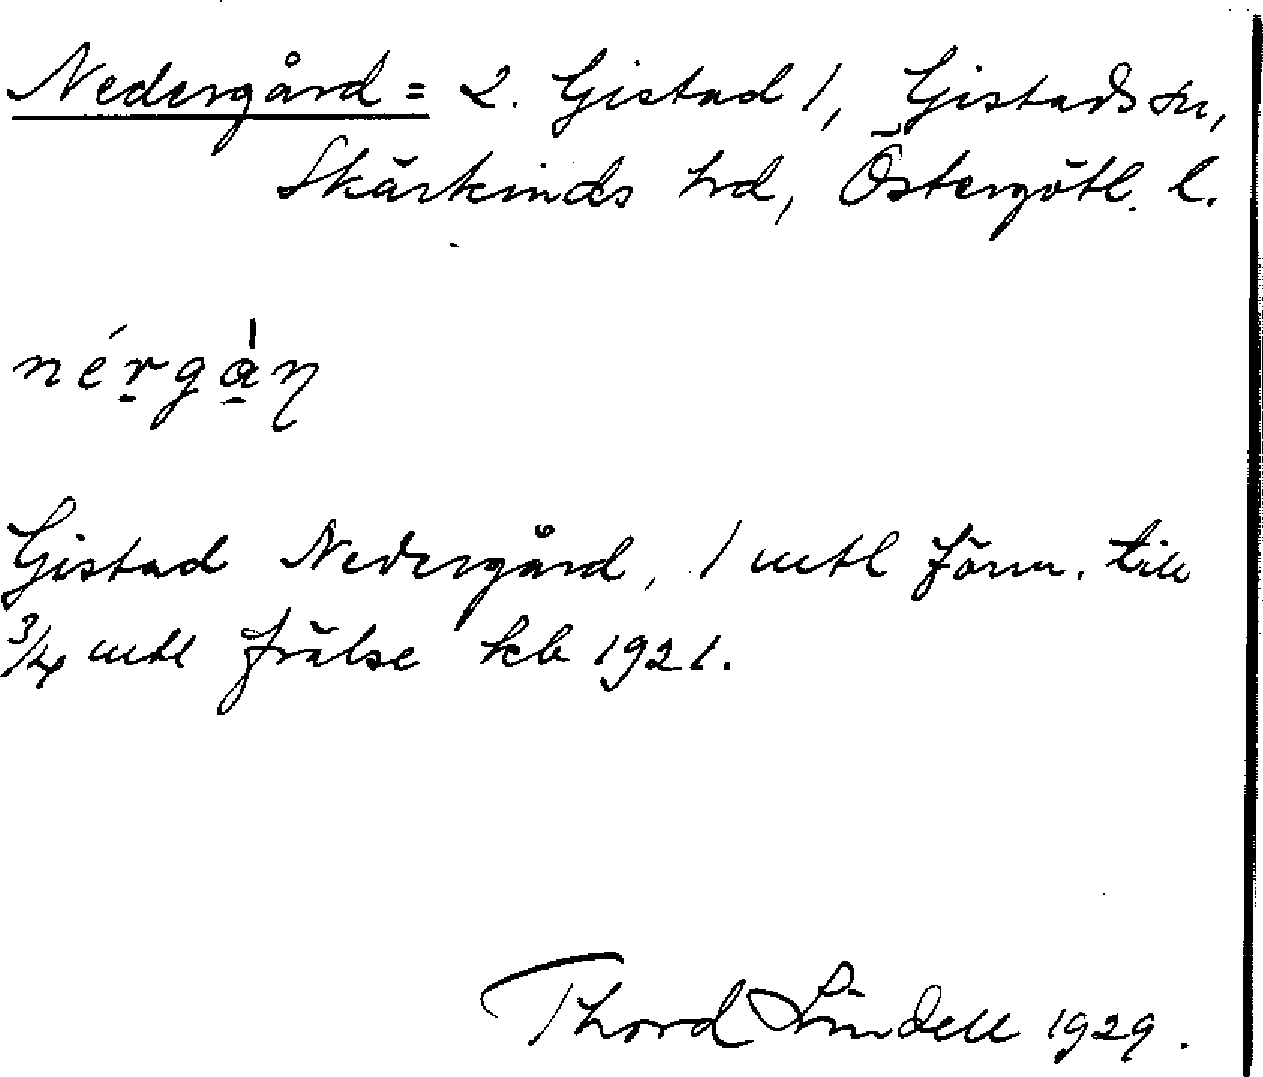 Nedergård = 2. Gistad 1, Gistads sn,
Skärkinds hd, Östergötl. l.
nérgàn
Gistad Nedergård, 1 mtl förm. till
3/4 mtl frälse kb 1921.
Thord Lindell 1929.